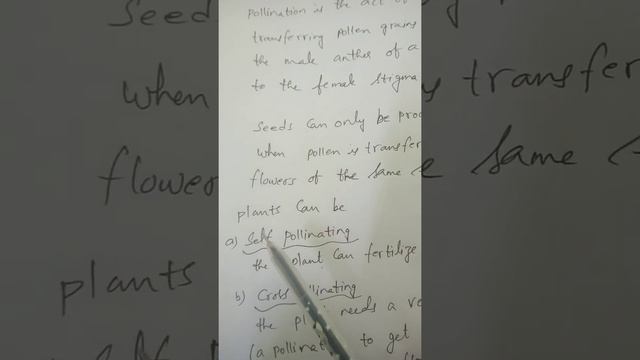 pollination is the act of
transferring pollen grains
the male anther of a
to the female stigma
seeds can only be prod
when pollen is transfer
flowers of the same
plants can be
a) self pollinating
the plant can fertilize
b) Cross llinating
the pl needs a ve
(a pollinat to get